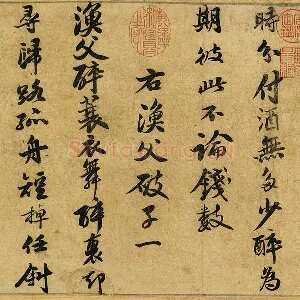 時分付酒無多少醉為
期彼此不論錢數
右漁父破子一
漁父醉蓑衣舞醉裏却
尋歸路孤舟短棹任斜